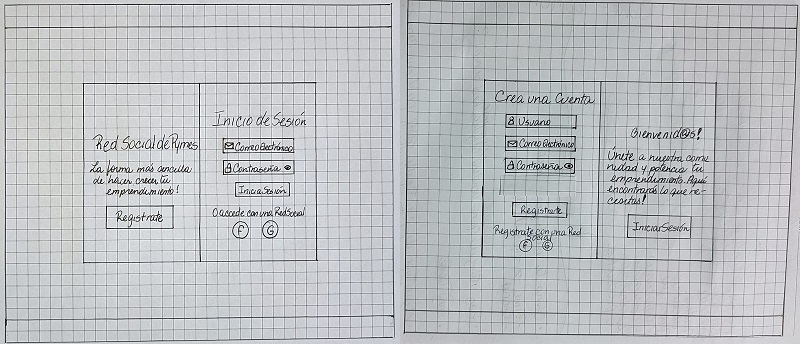 Red Social de Pymes
La forma más sencilla
de hacer crecer tu
emprendimiento!
Registrate
Inicio de Sesión
Correo Electrónico
Contraseña
Iniciar Sesión
O accede con una Red Social
F G
Crea una Cuenta
Usuario
Correo Electrónico
Contraseña
Registrate
Registrate con una Red
Social
F G
Bienvenid@s!
Únete a nuestra comu
nidad y potencia tu
emprendimiento. Aquí
encontrarás lo que ne-
cesitas!
Iniciar Sesión